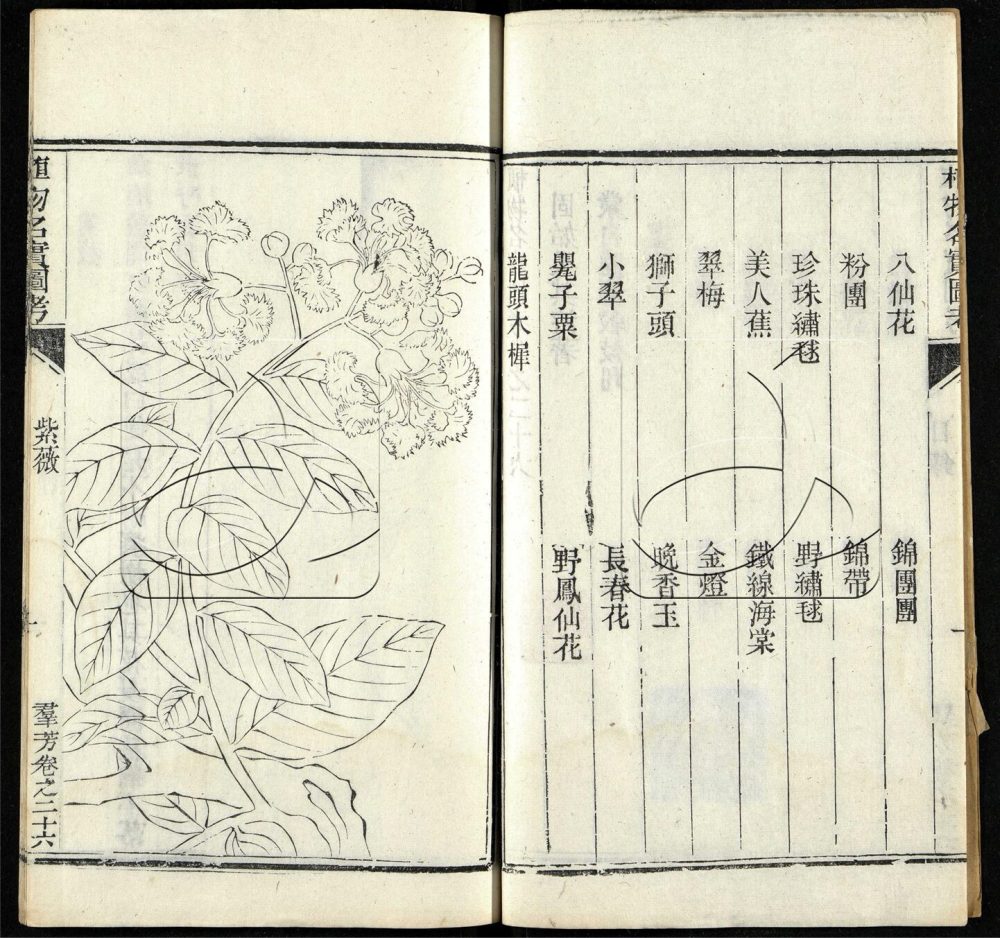 植物名實圖考
八仙花
錦團團
粉團
錦帶
珍珠繡毬
野繡毬
美人蕉
鐵線海棠
翠梅
金燈
獅子頭
晚香玉
小翠
長春花
甖子粟
野鳳仙花
龍頭木樨
植物名實圖考
紫薇
羣芳卷之二十六